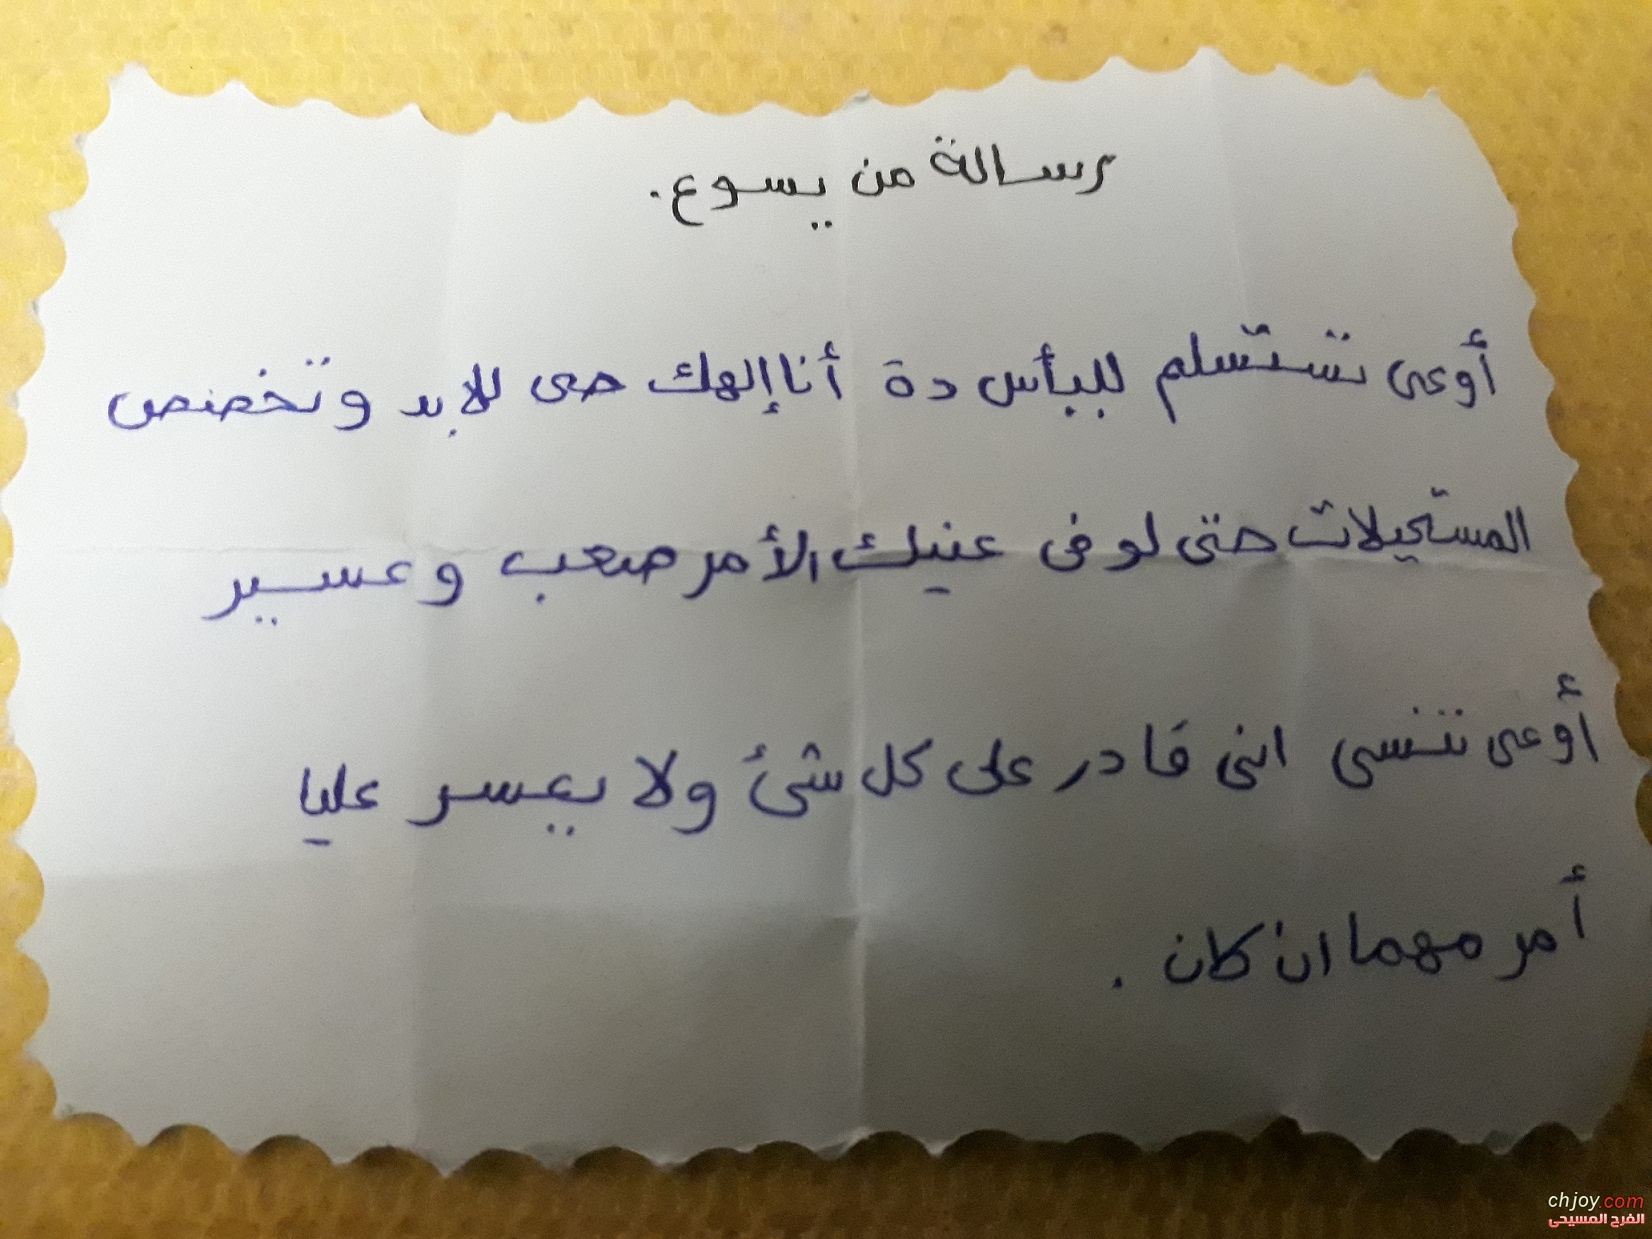 رسالة من يسوع.
أوعى تستسلم لليأس دة أنا إلهك حى للابد وتخصص
المستحيلات حتى لو فى عنيك الأمر صعب وعسير
أوعى تنسى انى قادر على كل شئ ولا يعسر عليا
أمر مهما ان كان .
chjoy.com
الفرح المسيحى